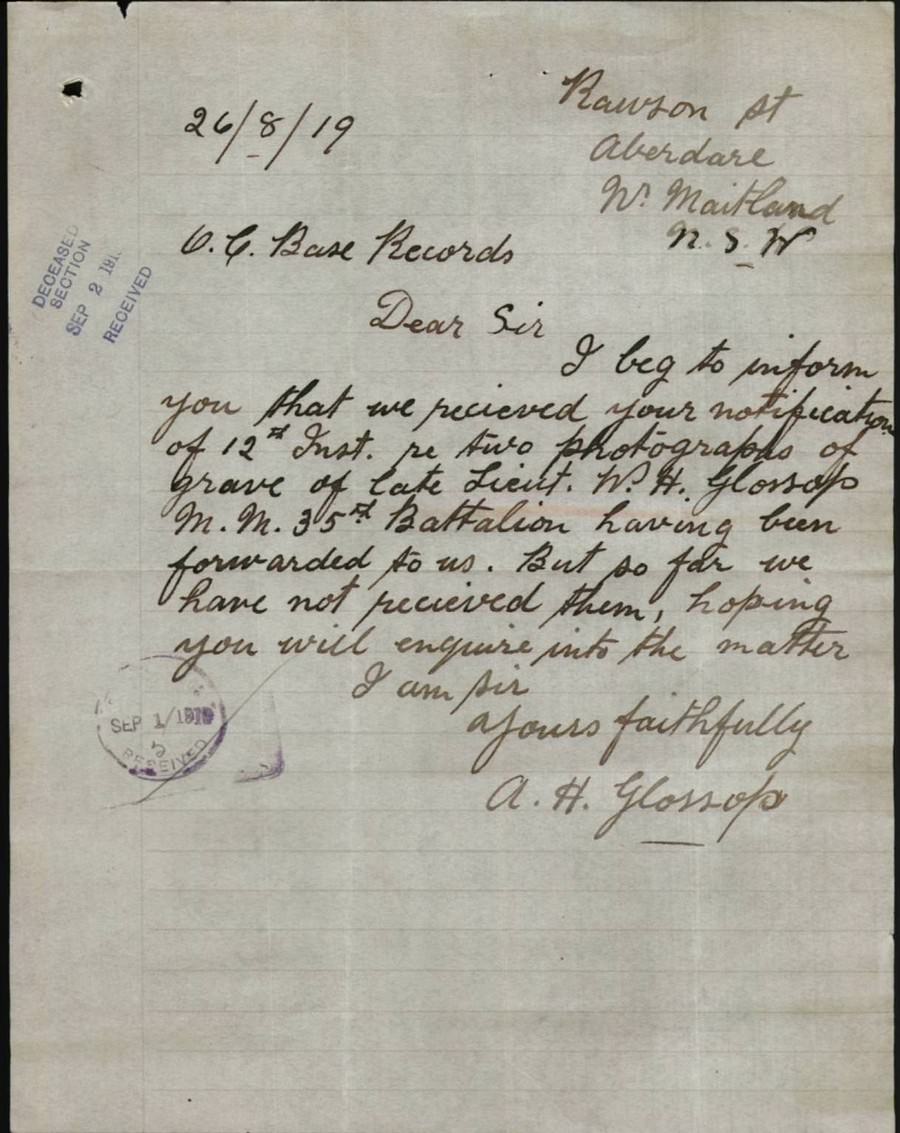 Rawson st
26/8/19
Aberdare
Wt Maitland
N. S. W
O. C. Base Records
DECEASED
SECTION
SEP 2 191
RECEIVED
Dear Sir
I beg to inform
you that we recieved your notification
of 12st Inst. re two photograps of
grave of late Lieut. W. H. Glossop
M. M. 35st Battalion having been
forwarded to us. But so far we
have not recieved them, hoping
you will enquire into the matter
I am sir
yours faithfully
A. H. Glossop
SEP 1/1919
RECEIVED